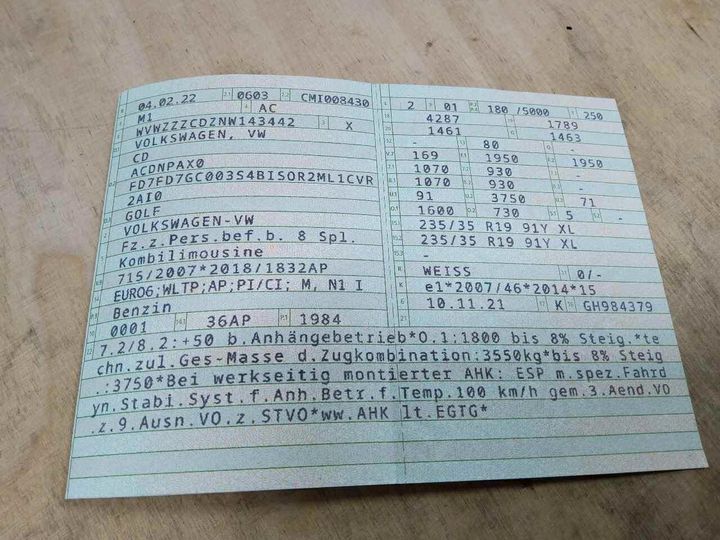 04.02.22 0603 CMI008430
M1 AC
WVWZZZCDZNW143442 X
VOLKSWAGEN, VW
CD
ACDNPAX0
FD7FD7GC003S4BISOR2ML1CVR
2AI0
GOLF
VOLKSWAGEN-VW
Fz.z.Pers.bef.b. 8 Spl.
Kombilimousine
715/2007*2018/1832AP
EURO6;WLTP;AP;PI/CI; M, N1 I
Benzin
0001 36AP 1984
2 01 180 /5000 250
4287 1789
1461 1463
- 80 -
169 1950 1950
1070 930 -
1070 930 -
91 3750 71
1600 730 5 -
235/35 R19 91Y XL
235/35 R19 91Y XL
-
WEISS 0/-
e1*2007/46*2014*15
10.11.21 K GH984379
7.2/8.2:+50 b.Anhängebetrieb*O.1:1800 bis 8% Steig.*te
chn.zul.Ges-Masse d.Zugkombination:3550kg*bis 8% Steig
.:3750*Bei werkseitig montierter AHK: ESP m.spez.Fahrd
yn.Stabi.Syst.f.Anh.Betr.f.Temp.100 km/h gem.3.Aend.VO
.z.9.Ausn.VO.z.STVO*ww.AHK lt.EGTG*